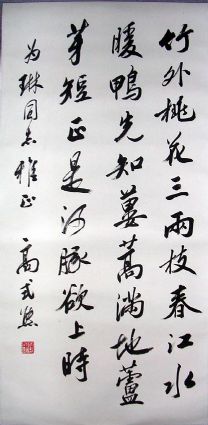 竹外桃花三兩枝春江水
暖鴨先知蔞蒿滿地蘆
芽短正是河豚欲上時
为琳同志雅正
高式熊